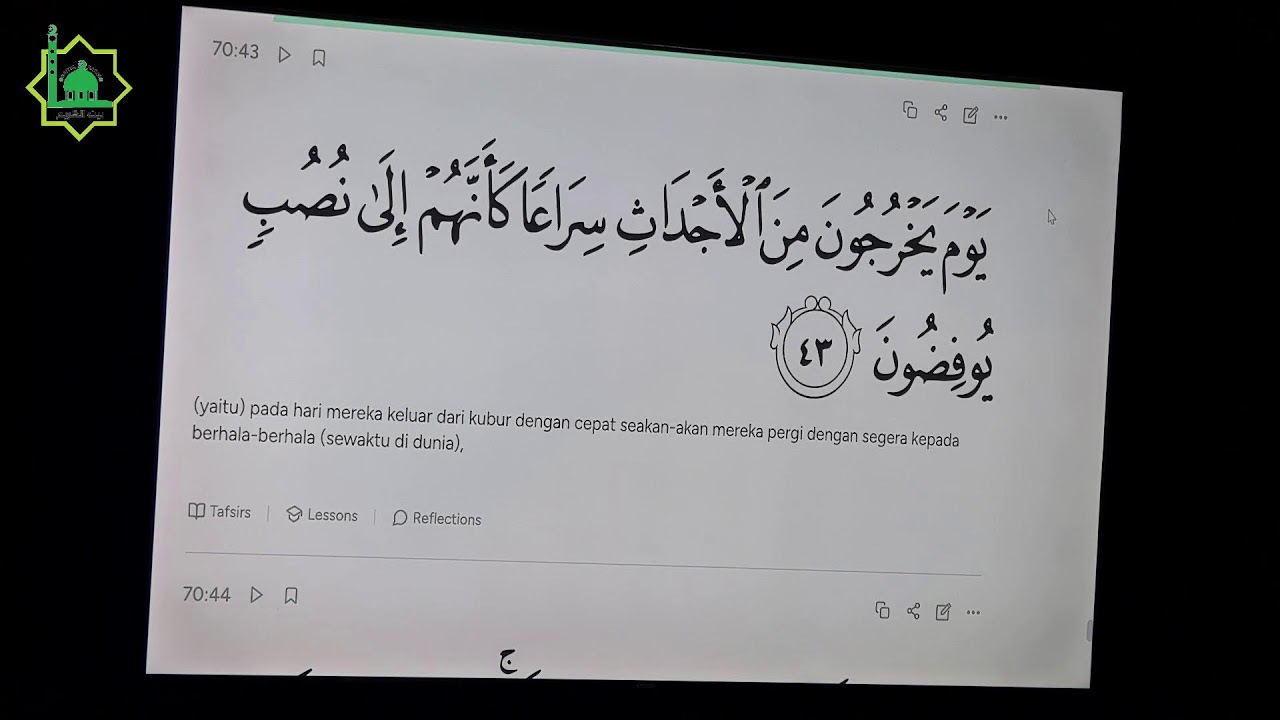 بيت الكريم
70:43
يَوْمَ يَخْرُجُونَ مِنَ ٱلْأَجْدَاثِ سِرَاعًا كَأَنَّهُمْ إِلَىٰ نُصُبٍ
يُوفِضُونَ ٤٣
(yaitu) pada hari mereka keluar dari kubur dengan cepat seakan-akan mereka pergi dengan segera kepada
berhala-berhala (sewaktu di dunia),
Tafsirs | Lessons | Reflections
70:44